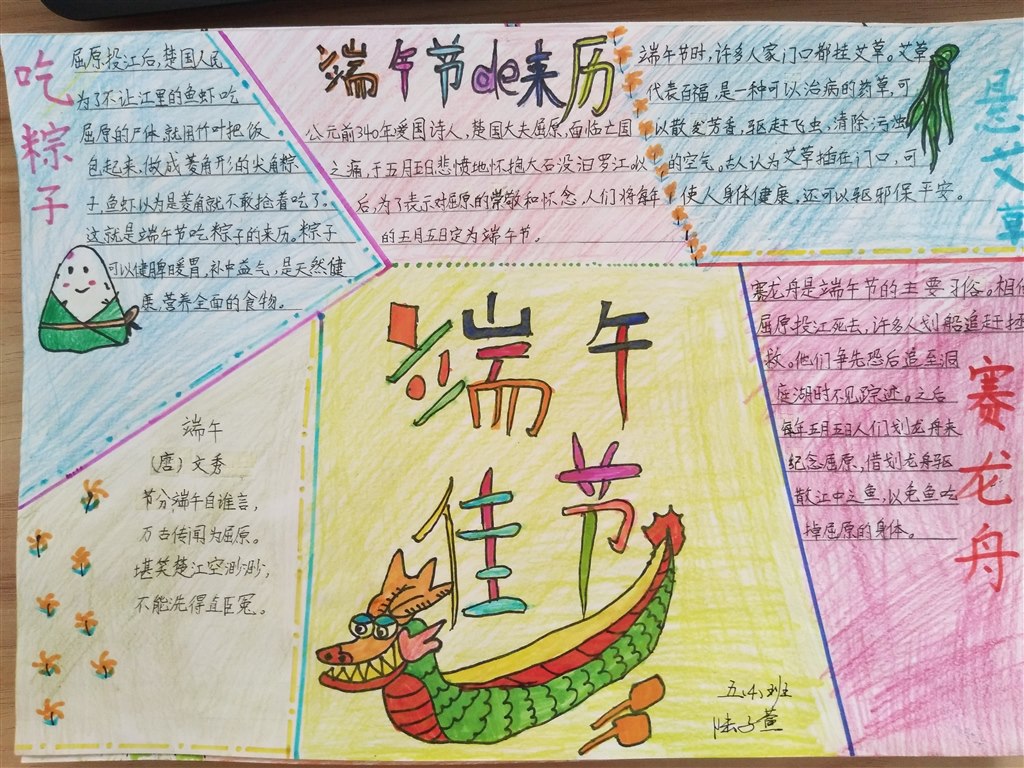 吃粽子
屈原投江后,楚国人民
为了不让江里的鱼虾吃
屈原的尸体,就用竹叶把饭
包起来,做成菱角形的尖角粽
子,鱼虾以为是菱角就不敢抢着吃了。
这就是端午节吃粽子的来历。粽子
可以健脾暖胃,补中益气,是天然健
康,营养全面的食物。
端午节de来历
公元前340年爱国诗人,楚国大夫屈原,面临亡国
之痛,于五月五日悲愤地怀抱大石没汨罗江以
后,为了表示对屈原的崇敬和怀念,人们将每年
的五月五日定为端午节。
端午节时,许多人家门口都挂艾草。艾草
代表百福,是一种可以治病的药草,可
以散发芳香,驱赶飞虫,清除污浊
的空气。古人认为艾草插在门口,可
使人身体健康,还可以驱邪保平安。
悬艾草
端午
佳节
端午
(唐)文秀
节分端午自谁言,
万古传闻为屈原。
堪笑楚江空渺渺,
不能洗得直臣冤。
赛龙舟是端午节的主要习俗。相传
屈原投江死去,许多人划船追赶拯
救。他们争先恐后追至洞
庭湖时不见踪迹。之后
每年五月五日人们划龙舟来
纪念屈原,借划龙舟驱
散江中之鱼,以免鱼吃
掉屈原的身体。
赛龙舟
五、4、班
陆子萱